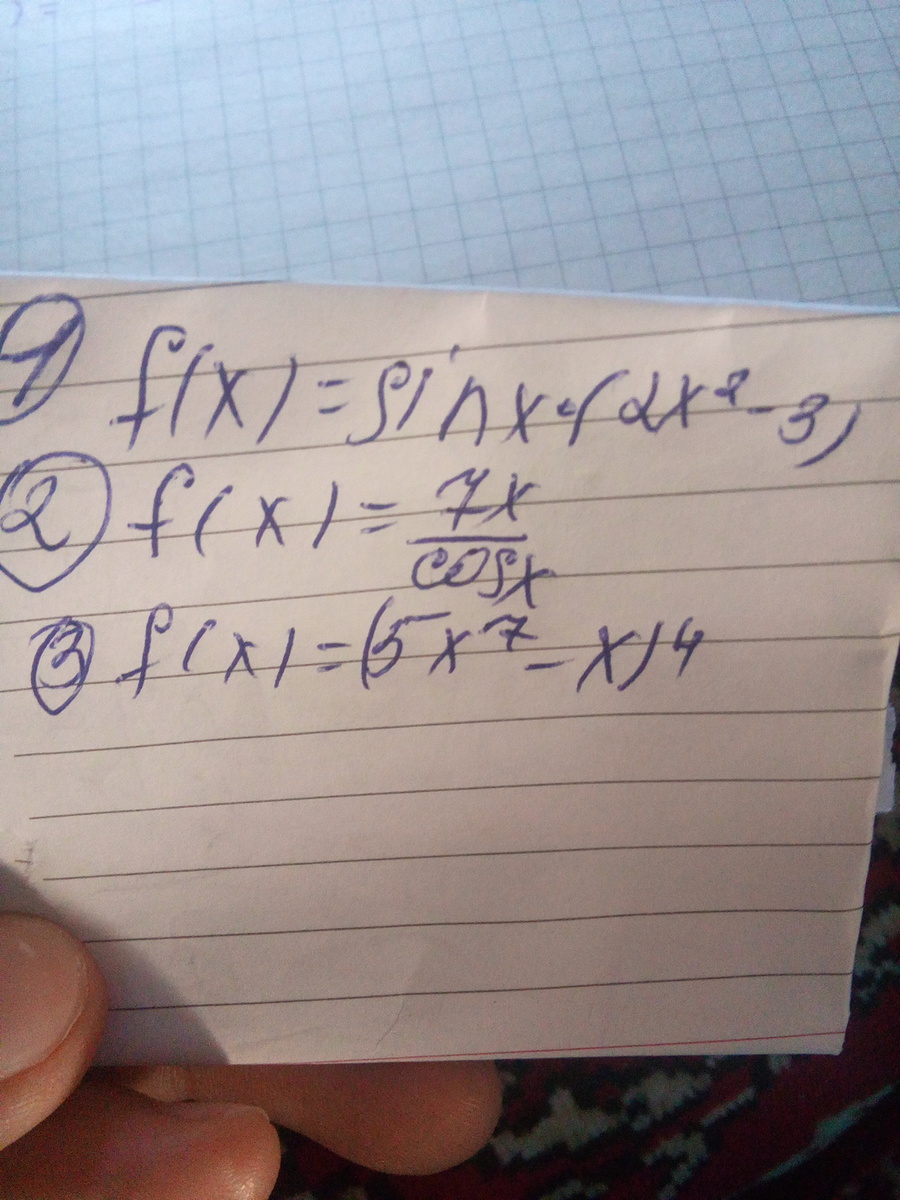 1 f(x)=sinx·(2x²-3)
2 f(x)=7x/cosx
3 f(x)=(5x⁷-x)4